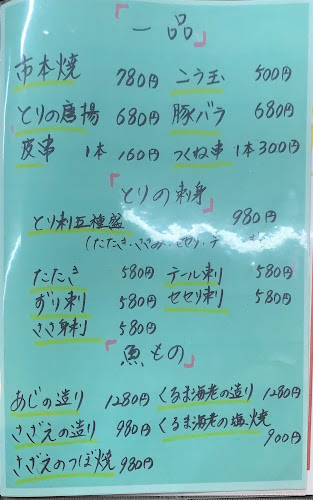 「一品」
市本焼 780円 ニラ玉 500円
とりの唐揚 680円 豚バラ 680円
皮串 1本 160円 つくね串 1本300円
「とりの刺身」
とり刺五種盛 980円
(たたき・ささみ・セセリ・テ
たたき 580円 テール刺 580円
ずり刺 580円 セセリ刺 580円
ささ身刺 580円
「魚もの」
あじの造り 1280円 くるま海老の造り 1280円
さざえの造り 980円 くるま海老の塩焼 900円
さざえのつぼ焼 980円